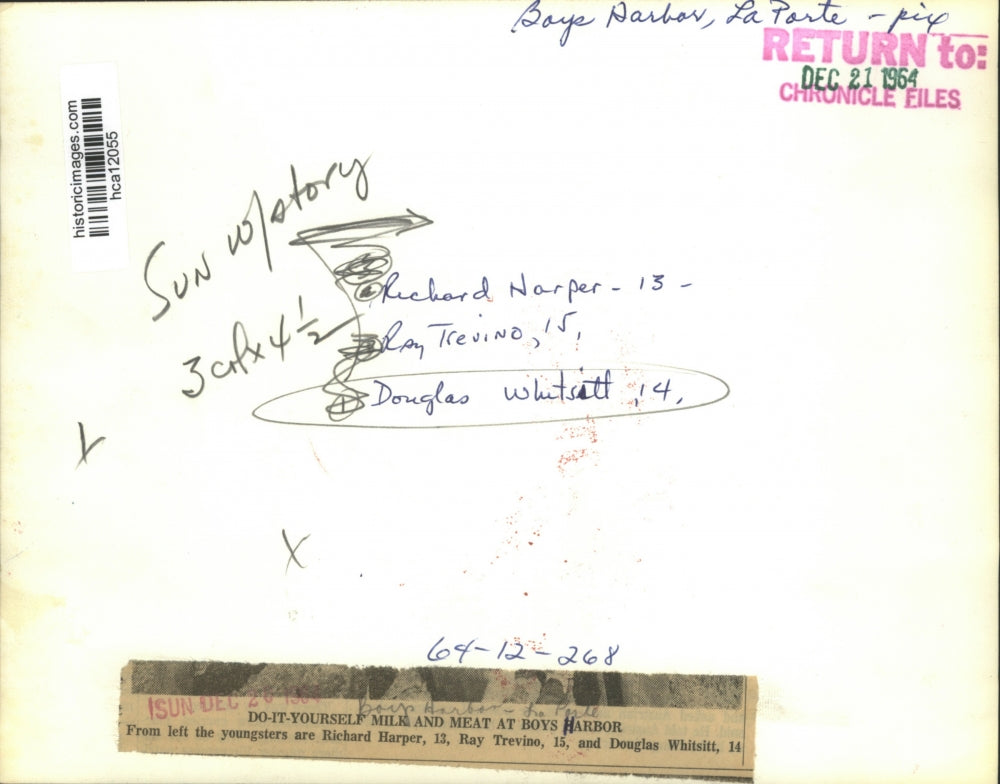 Boys Harbor, La Porte - pix
RETURN to:
DEC 21 1964
CHRONICLE FILES
historicimages.com
hca12055
Sun w/story
3 col x 4 1/2
Richard Harper - 13 -
Ray Trevino, 15,
1 Douglas Whitsitt, 14,
X
X
64-12-268
SUN DEC 20 1964
boys harbor - La Porte
DO-IT-YOURSELF MILK AND MEAT AT BOYS HARBOR
From left the youngsters are Richard Harper, 13, Ray Trevino, 15, and Douglas Whitsitt, 14